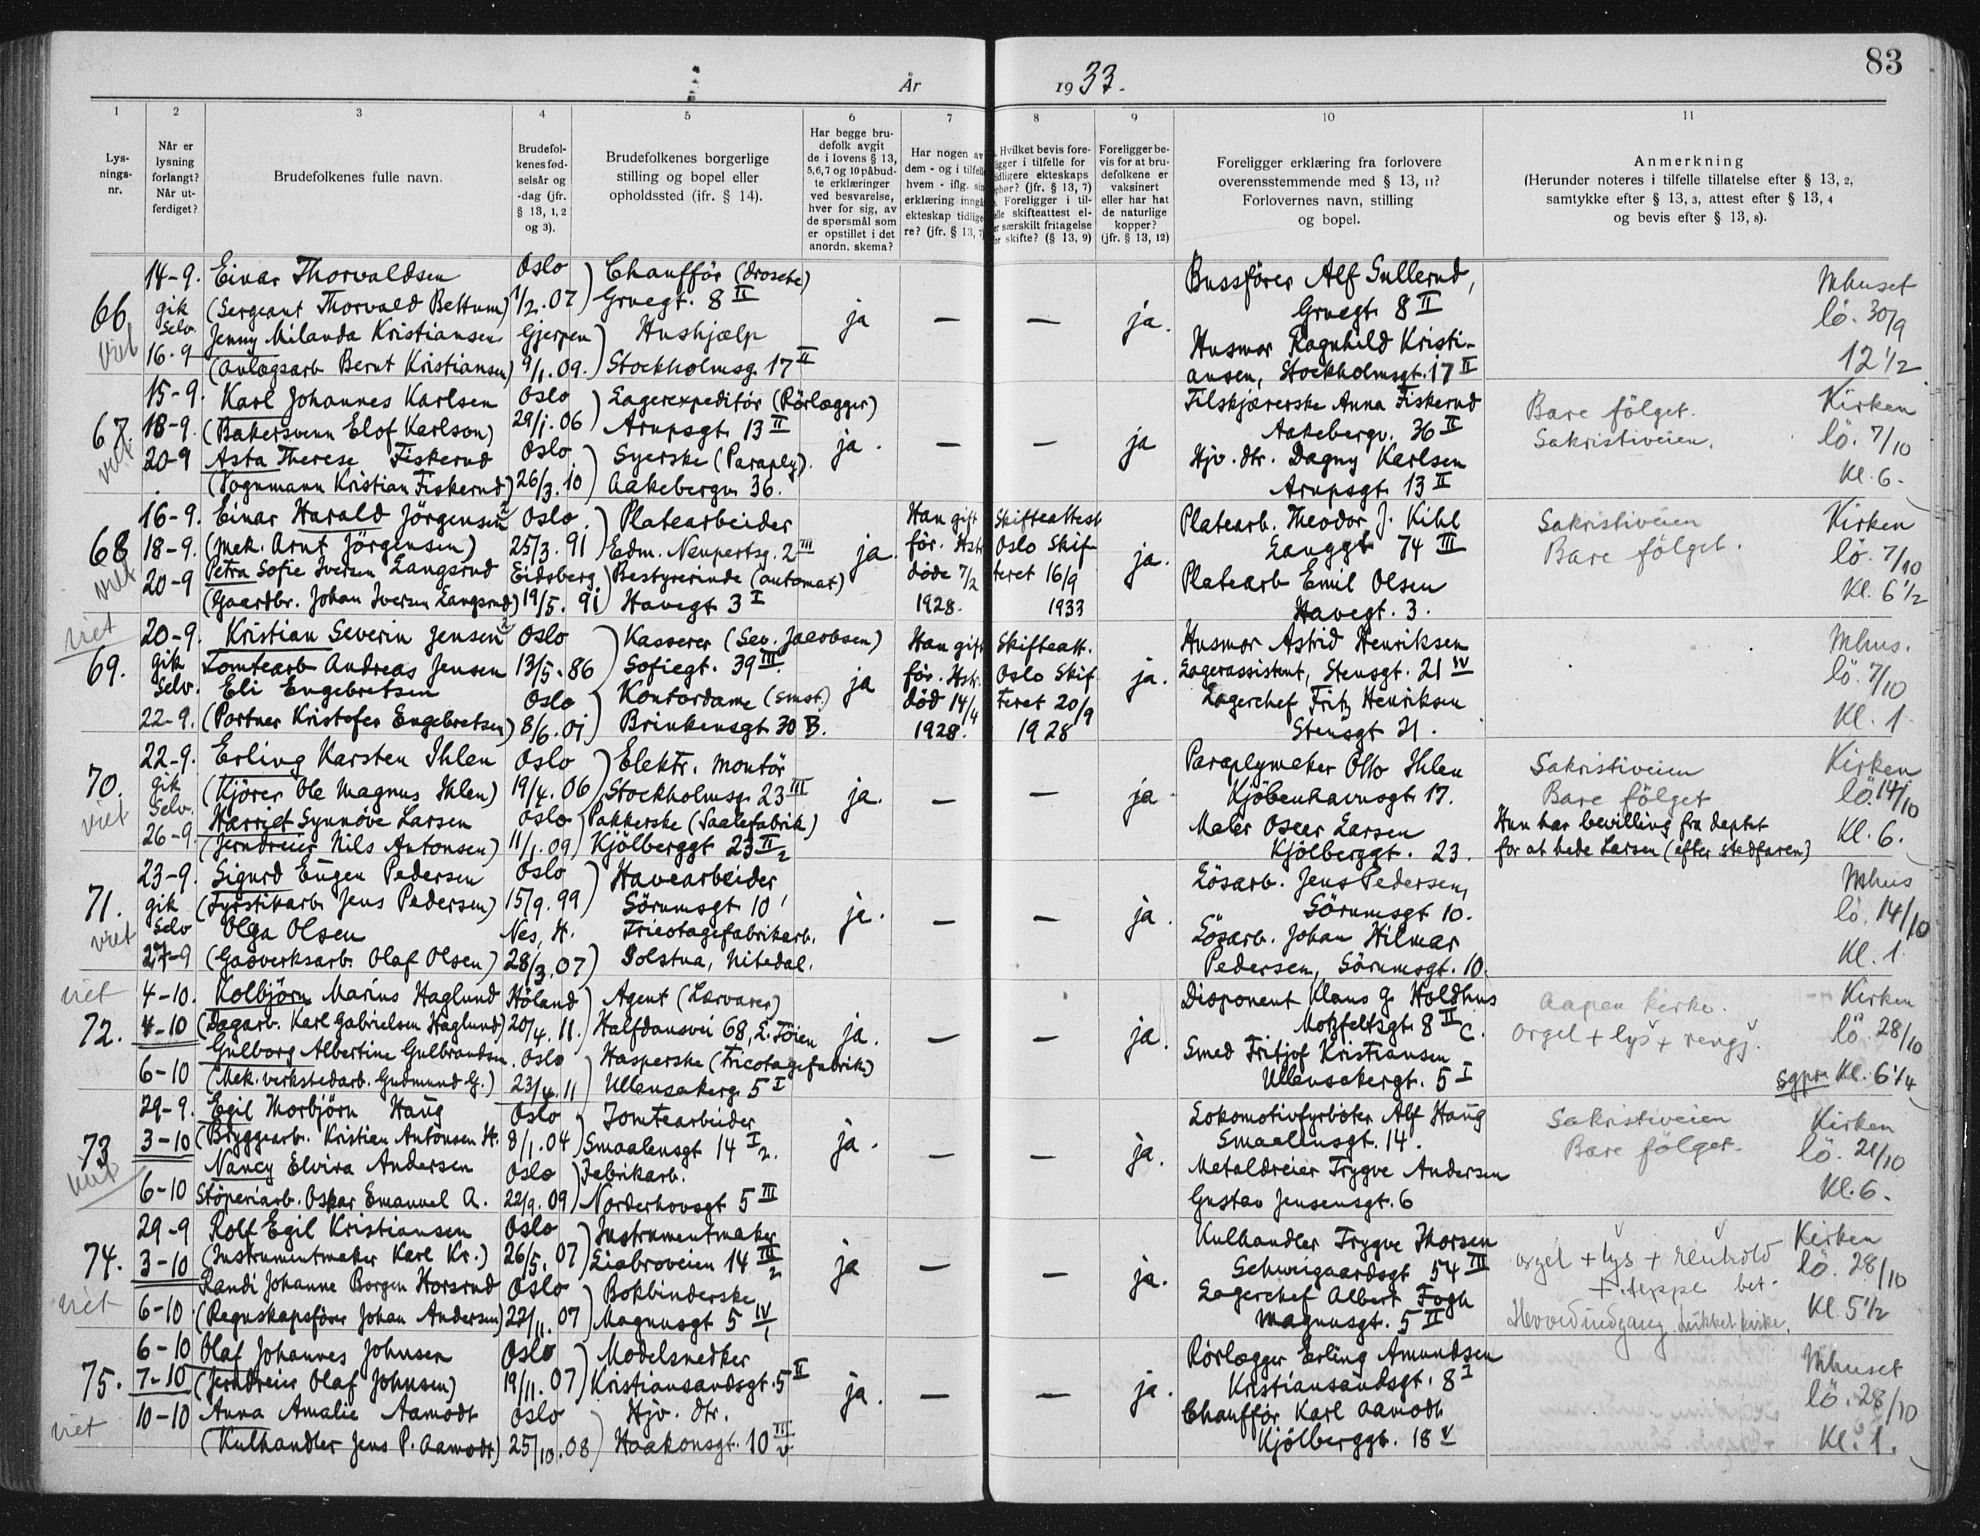 83
År 1933.
1 2 3 4 5 6 7 8 9 10 11
Lysningsnr.
Når er lysning forlangt? Når utferdiget?
Brudefolkenes fulle navn.
Brudefolkenes fødselsår og -dag (jfr. § 13, 1, 2 og 3).
Brudefolkenes borgerlige stilling og bopel eller opholdssted (ifr. § 14).
Har begge brudefolk avgit de i lovens § 13, 5,6,7 og 10 påbudte erklæringer ved besvarelse, hver for sig, av de spørsmål som er opstillet i det anordn. skema?
Har nogen av dem - og i tilfelle hvem - iflg. sin erklæring inngått ekteskap tidligere? (jfr. § 13, 7)
Hvilket bevis foreligger i tilfelle for tidligere ekteskaps ophør? (jfr. § 13, 7) Foreligger i tilfelle skifteattest eller særskilt fritagelse for skifte? (§ 13, 9)
Foreligger bevis for at brudefolkene er vaksinert eller har hat de naturlige kopper? (jfr. § 13, 12)
Foreligger erklæring fra forlovere overensstemmende med § 13, 11? Forlovernes navn, stilling og bopel.
Anmerkning (Herunder noteres i tilfelle tillatelse efter § 13, 2, samtykke efter § 13, 3, attest efter § 13, 4 og bevis efter § 13, 8).
14-9. Einar Thorvaldsen Oslo Chaufför (drosche) Bussförer Alf Sullerud, Mhuset
66 gik selv. (Sergeant Thorvald Bettum) 1/2.07 Gruegt. 8 II ja — — ja. Gruegt 8 II lö. 30/9
viet Jenny Milanda Kristiansen Gjerpen Hushjælp Husmor Ragnhild Kristi-
16-9 (anlægsarb Bernt Kristiansen) 9/1.09. Stockholmsg. 17 II ansen, Stockholmsgt. 17 II 12 1/2
15-9. Karl Johannes Karlsen Oslo Lagerexpeditör (Rörlægger) Filskjærerske Anna Fiskerud Bare fölget. Kirken
67. 18-9. (Bakersvenn Elof Karlson) 29/1.06 Arupsgt. 13 II ja. — — ja Aakebergv. 36 II Sakristiveien. lö. 7/10
viet 20-9 Asta Therese Fiskerud Oslo Syerske (Paraply). Hjv. dtr. Dagny Karlsen
(Vognmann Kristian Fiskerud) 26/3.10 Aakebergv. 36. Arupsgt. 13 II Kl. 6.
16-9. Einar Harald Jörgensen Oslo. Platearbeider Han gift Skifteattest Platearb. Theodor J. Kihl Sakristiveien Kirken
68 18-9. (Mek. Arnt Jörgensen) 25/3.91 Edm. Neupertsg. 2 III ja för. Hstr Oslo Skif ja. Langgt 74 III Bare fölget. lö. 7/10
viet Petra Sofie Iversen Langsrud Eidsberg Bestyrerinde (automat) döde 7/2 teret 16/9 Platearb Emil Olsen
20-9 (Gaardbr. Johan Iversen Langsrud) 19/5.91 Havegt 3 I 1928. 1933 Havegt. 3. Kl. 6 1/2
viet 20-9. Kristian Severin Jensen Oslo Kasserer (Sev. Jacobsen) Han gift Skifteatt. Husmor Astrid Henriksen Mhus.
69. gik Tomtearb Andreas Jensen 13/5.86 Sofiegt. 39 III. ja för. Hstr. Oslo Skif ja. Lagerassistent, Stensgt. 21 IV lö. 7/10
selv. Eli Engebretsen Oslo Kontordame (smst.) död 14/4 teret 20/9 Lagerchef Fritz Henriksen
22-9. (Portner Kristofer Engebretsen) 8/6.01 Brinkensgt 30 B. 1928. 1928 Stensgt 21. Kl. 1
22-9. Erling Karsten Ihlen Oslo Elektr. montör Paraplymaker Otto Ihlen Sakristiveien Kirken
70. gik (Kjörer Ole Magnus Ihlen) 19/4.06 Stockholmsg. 23 III ja. — — ja Kjöbenhavnsgt 17. Bare fölget lö 14/10
viet selv. Harriet Synnöve Larsen Oslo Pakkerske (Saalefabrik) Maler Oscar Larsen Hun har bevilling fra deptet
26-9. (Jerndreier Nils Antonsen) 11/1.09 Kjölberggt 23 II/2 Kjölberggt. 23. for at hede Larsen (efter stedfaren) Kl. 6.
23-9. Sigurd Eugen Pedersen Oslo Havearbeider Lösarb. Jens Pedersen, Mhus
71. gik (Fyrstikarb. Jens Pedersen) 15/9.99 Sörumsgt 10 ja. — — ja. Sörumsgt 10. lö. 14/10
viet selv Olga Olsen Nes, H. Tricotagefabrikarb. Lösarb. Johan Hilmar
27-9 (Gasverksarb. Olaf Olsen) 28/3.07 Dolstua, Nitedal. Pedersen, Sörumsgt. 10. Kl. 1.
viet 4-10. Kolbjörn Marius Haglund Höland Agent (Lærvarer) Disponent Klaus G. Holdhus Aapen kirke. Kirken
72. 4-10 (Dagarb. Karl Gabrielsen Haglund) 20/4.11. Halfdansvei 68, Ö. Töien ja. — — ja. Motzfeltsgt 8 II C. orgel + lys + rengj. lö 28/10
Gulborg Albertine Gulbrandsen. Oslo Hasperske (Tricotagefabrik) Smed Fritjof Kristiansen
6-10 (Mek. verkstedarb. Gudmund G.) 23/4.11 Ullensakerg. 5 I Ullensakergt. 5 I sgpr. Kl. 6 1/4
29-9. Egil Thorbjörn Haug Oslo Tomtearbeider Lokomotivfyrböter Alf Haug Sakristiveien Kirken
73 3-10 (Bryggearb. Kristian Antonsen H. 8/1.04 Smaalensgt 14 I/2. ja. — — ja. Smaalensgt. 14. Bare fölget. lö. 21/10
viet Nancy Elvira Andersen Oslo Fabrikarb. Metaldreier Trygve Andersen
6-10 Stöperiarb. Oskar Emanuel A. 22/9.09 Norderhovsgt 5 III Gustav Jensensgt. 6 Kl. 6.
29-9 Rolf Egil Kristiansen Oslo Instrumentmaker Kulhandler Trygve Thorsen orgel + lys + renhold Kirken
74. 3-10 (Instrumentmaker Karl Kr.) 26/5.07 Liabroveien 14 III/2 ja — — ja. Schweigaardsgt 54 III + teppe bet. lö. 28/10
viet Randi Johanne Borgen Horsrud Oslo Bokbinderske Lagerchef Albert Fogh
6-10 (Regnskapsförer Johan Andersen) 22/11.07 Magnusgt 5 IV/1 Magnusgt. 5 II Hovedindgang. Lukket kirke. Kl. 5 1/2
6-10 Olaf Johannes Johnsen Oslo Modelsnedker Rörlægger Erling Amundsen Mhuset
75. 7-10 (Jerndreier Olaf Johnsen) 19/11.07 Kristiansandsgt. 5 II ja. — — ja. Kristiansandsgt. 8 I lö. 28/10
viet 10-10 Anna Amalie Aamodt Oslo Hjv. dtr. Chaufför Karl Aamodt
(Kulhandler Jens P. Aamodt) 25/10.08 Haakonsgt. 10 III/v Kjölberggt. 18 V Kl. 1.